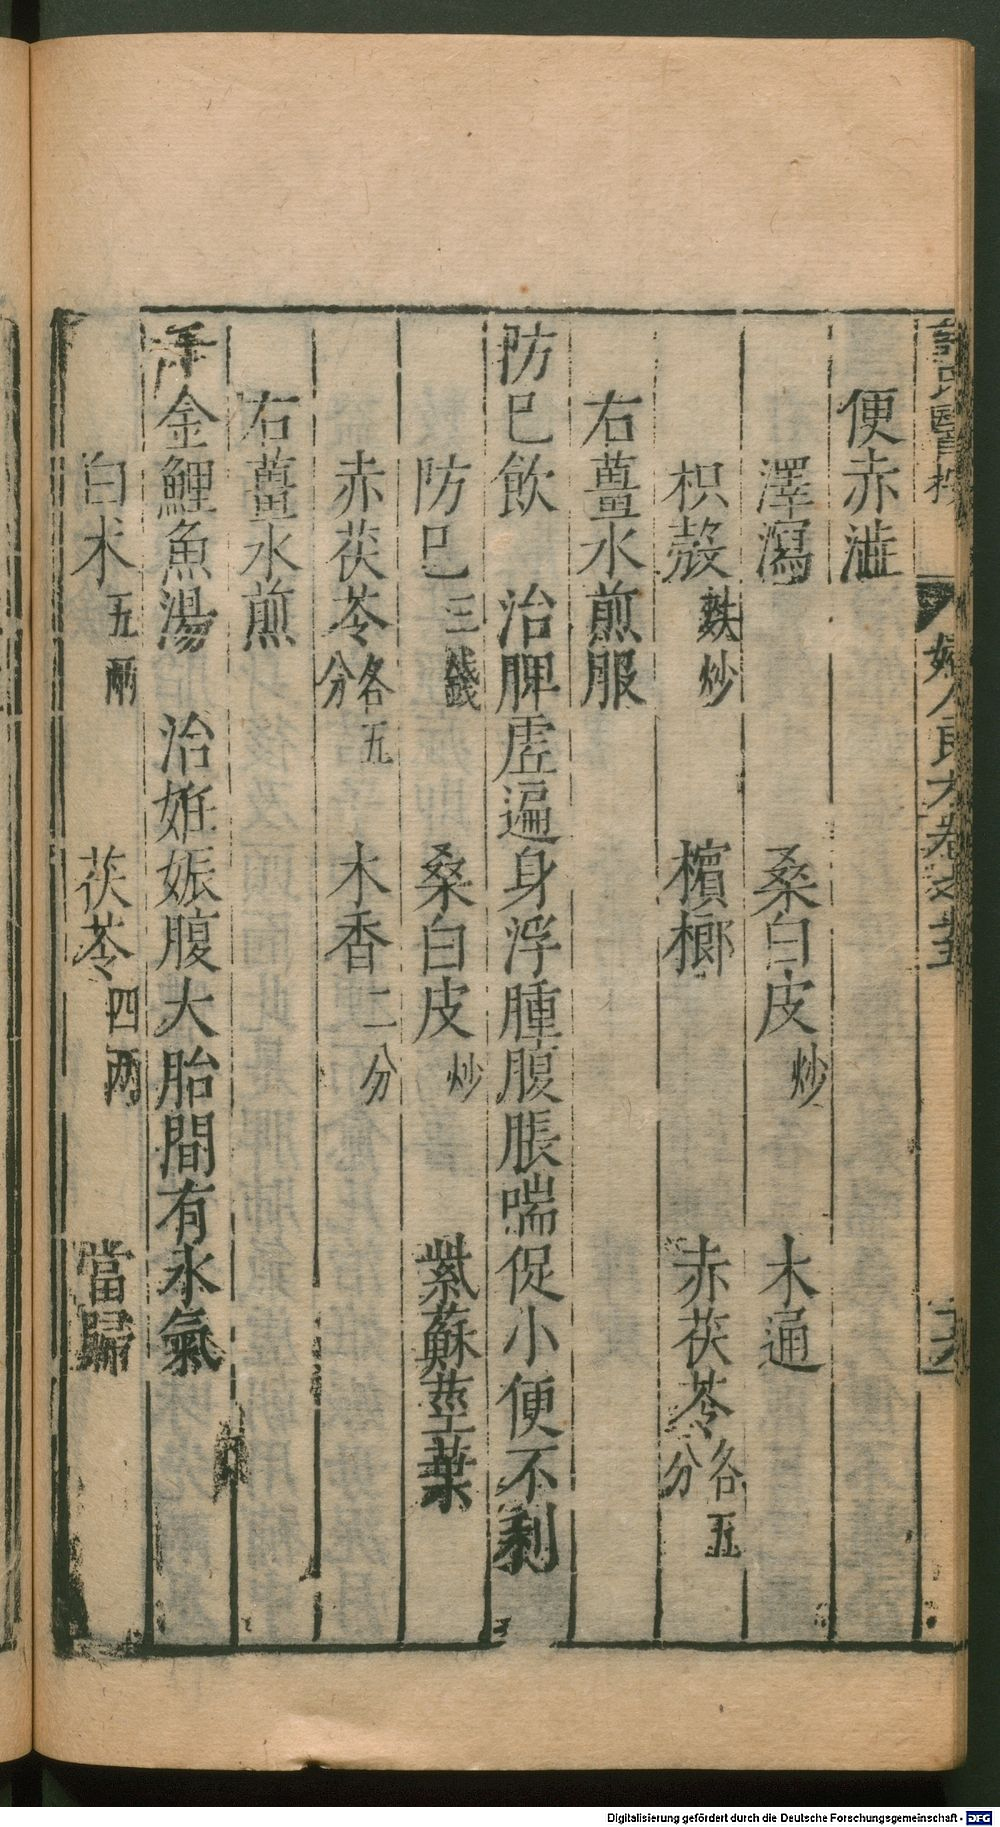 薛氏醫按 婦人良方卷之十五 十六
便赤澁
澤瀉 桑白皮炒 木通
枳殼麩炒 檳榔 赤茯苓各五分
右薑水煎服
防巳飲 治脾虛遍身浮腫腹脹喘促小便不利
防巳三錢 桑白皮炒 紫蘇莖葉
赤茯苓各五分 木香二分
右薑水煎
千金鯉魚湯 治姙娠腹大胎間有水氣
白术五兩 茯苓四两 當歸
Digitalisierung gefördert durch die Deutsche Forschungsgemeinschaft - DFG